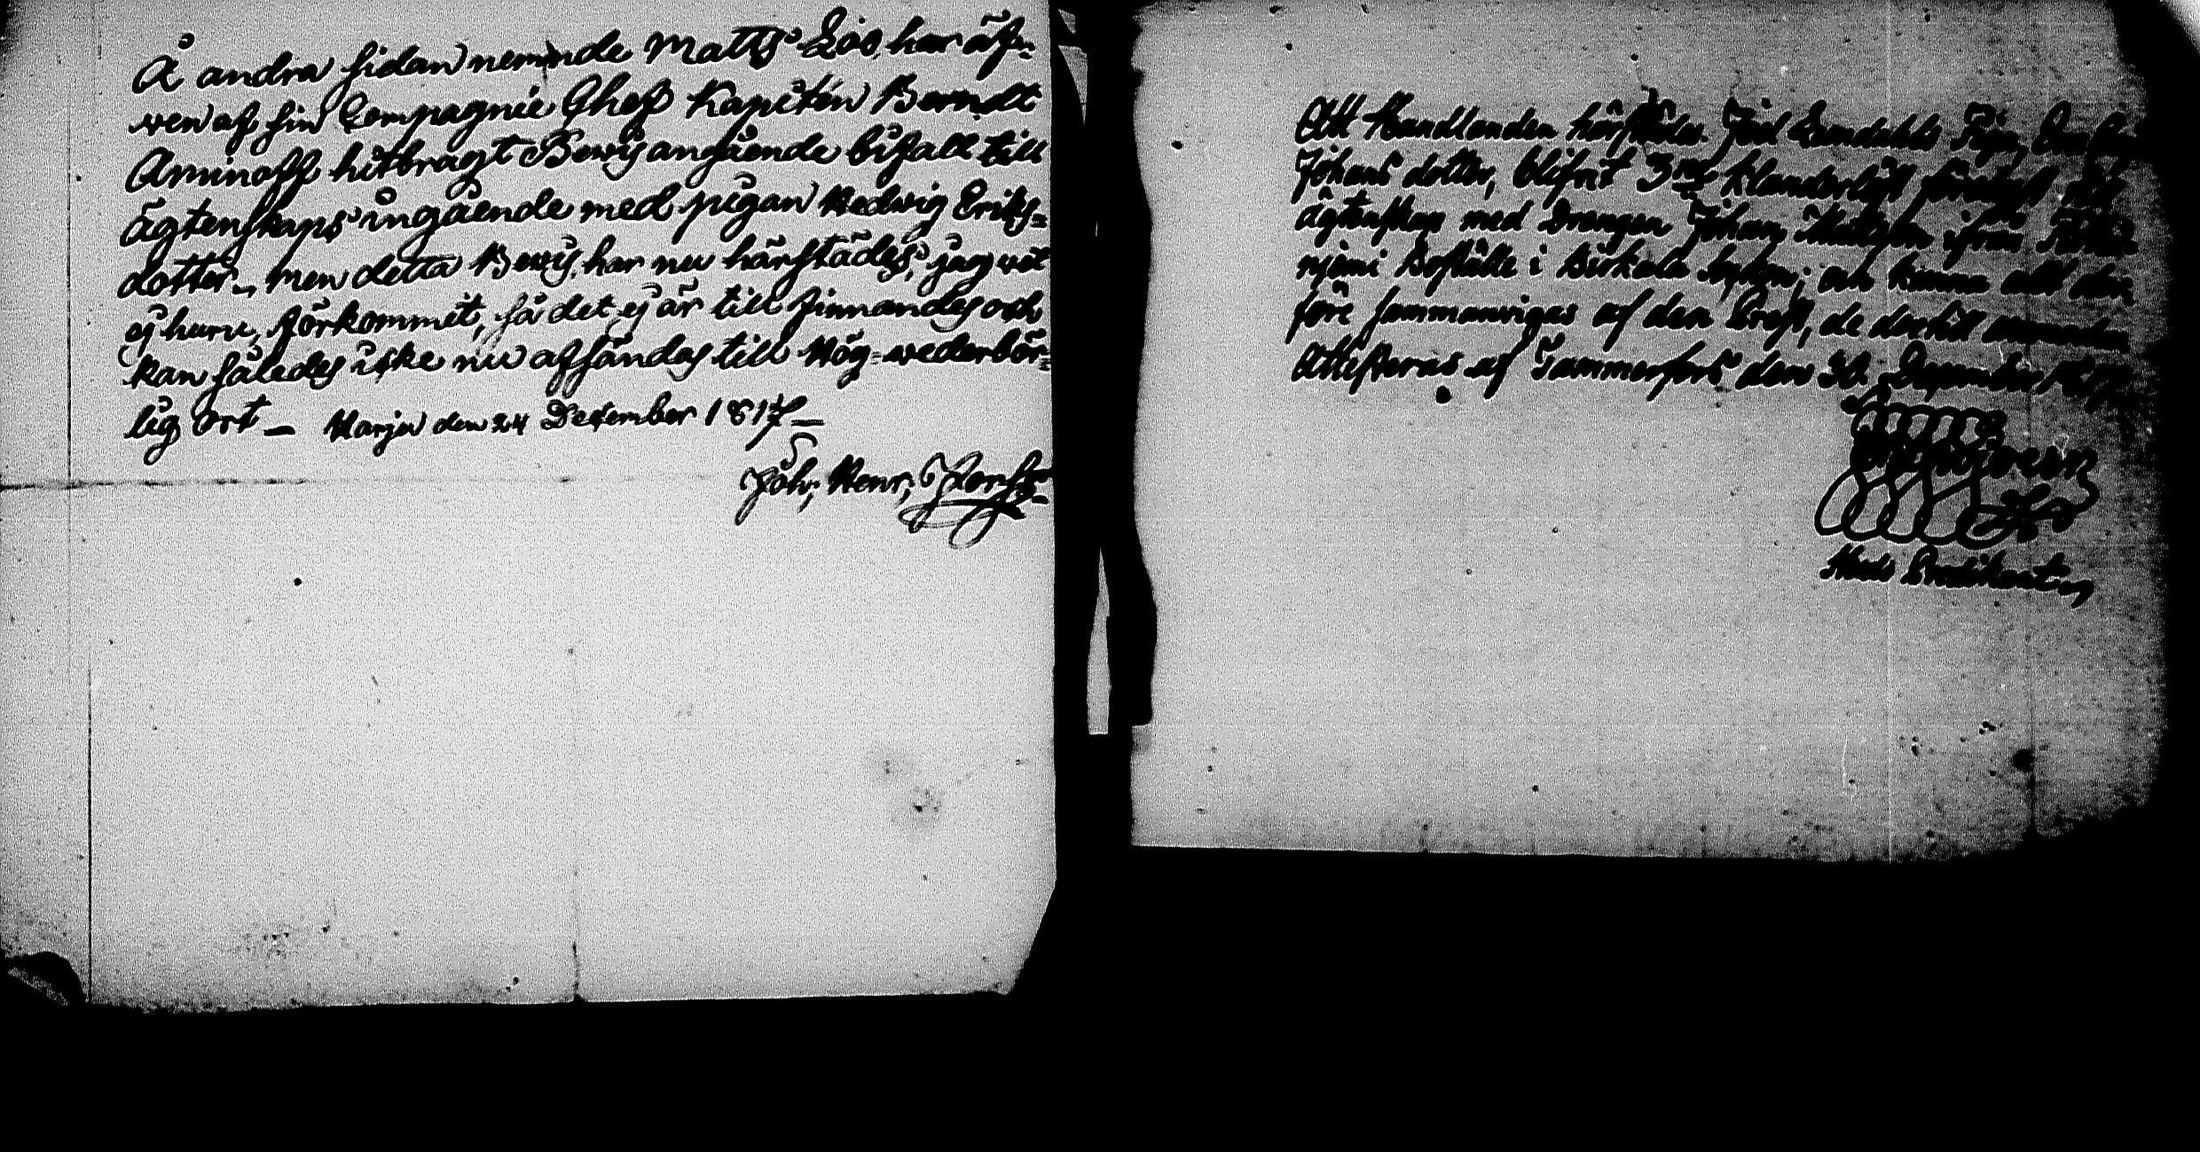 Å andra sidan nemnde Matts Lös, har äf-
ven af sin Compagnie Chef Kapiten Berndt
Aminoff hitbragt Bevis angående bifall till
ägtenskaps ingående med pigan Hedwig Eriks-
dotter, men detta Bevis har nu härstädes, jag vet
ej huru, förkommit, så det ej är till finnandes och
kan således icke nu afsändas till Hög-vederbör-
lig ort — Harju den 24 December 1817 —
Joh, Henr,
Att Handlanden härstädes Pigan
Johans dotter, blifvit 3ne Klanderlöst
ägtenskap med Drengen Johan ifrån
njemi Boställe i Birkala Sokn; och kunna allt der
före sammanvigas af den Prest, de dertill anmoda
Attesteras af Tammerfors den 30 December
Predikant